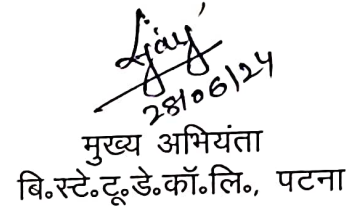 28/06/24
मुख्य अभियंता
बि॰स्टे॰टू॰डे॰कॉ॰लि॰, पटना